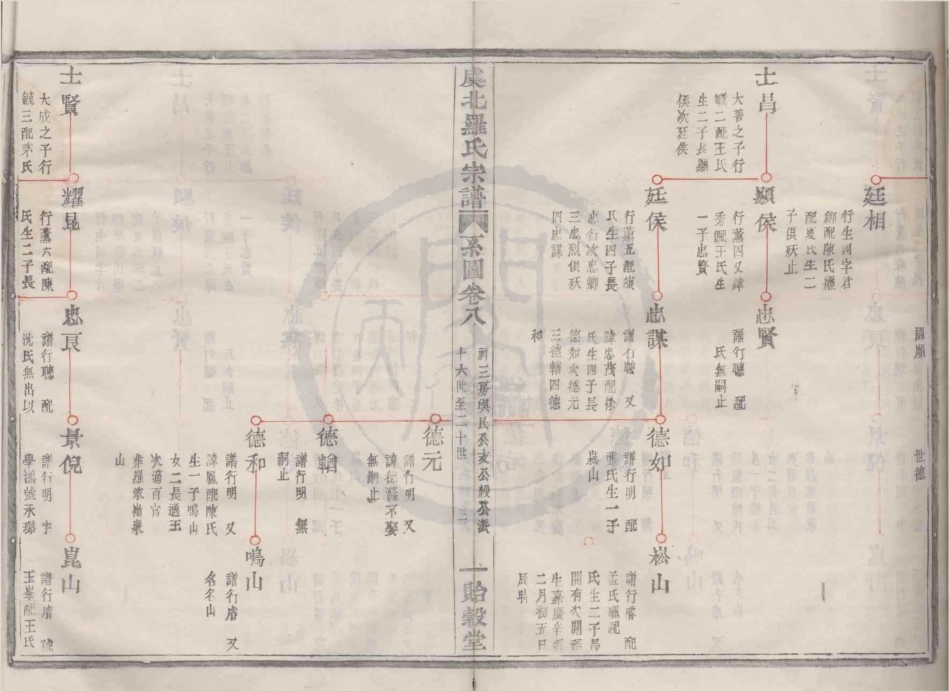 廷相
行生四字君
配陳氏繼
配嚴氏生二
子俱殀止
士昌
大善之子行
二配王氏
生二子長顯
侯次廷侯
顯侯
行薰四又諱
秀配王氏生
一子忠賢
忠賢
譜行聰 配
氏無嗣止
廷侯
行薰五配
氏生四子長
忠行次忠
三忠烈俱殀
四忠謀
忠謀
譜行聰 又
諱忠茂配徐
氏生四子長
德如次德元
三德韜四德
和
德如
譜行明 配
張氏生一子
崧山
崧山
譜行睿 配
孟氏繼配
氏生二子長
開有次開
生嘉慶辛酉
二月初五日
辰時
虞北羅氏宗譜
系圖卷八
十六世至二十世
一 貽穀堂
德元
譜行明 又
諱德 不娶
無嗣止
德韜
譜行明 無
嗣止
德和
譜行明 又
諱鳳配陳氏
生一子鳴山
女二長適王
次適百官
山
鳴山
譜行睿 又
名名山
士賢
大成之子行
三配茅氏
耀昆
行薰六配陳
氏生二子長
忠良
譜行聰 配
沈氏無出以
景倪
譜行明 字
學 號永瑞
崑山
譜行睿 號
玉峯配王氏